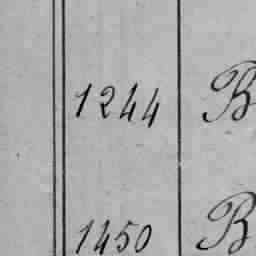 1244 B
1450 B